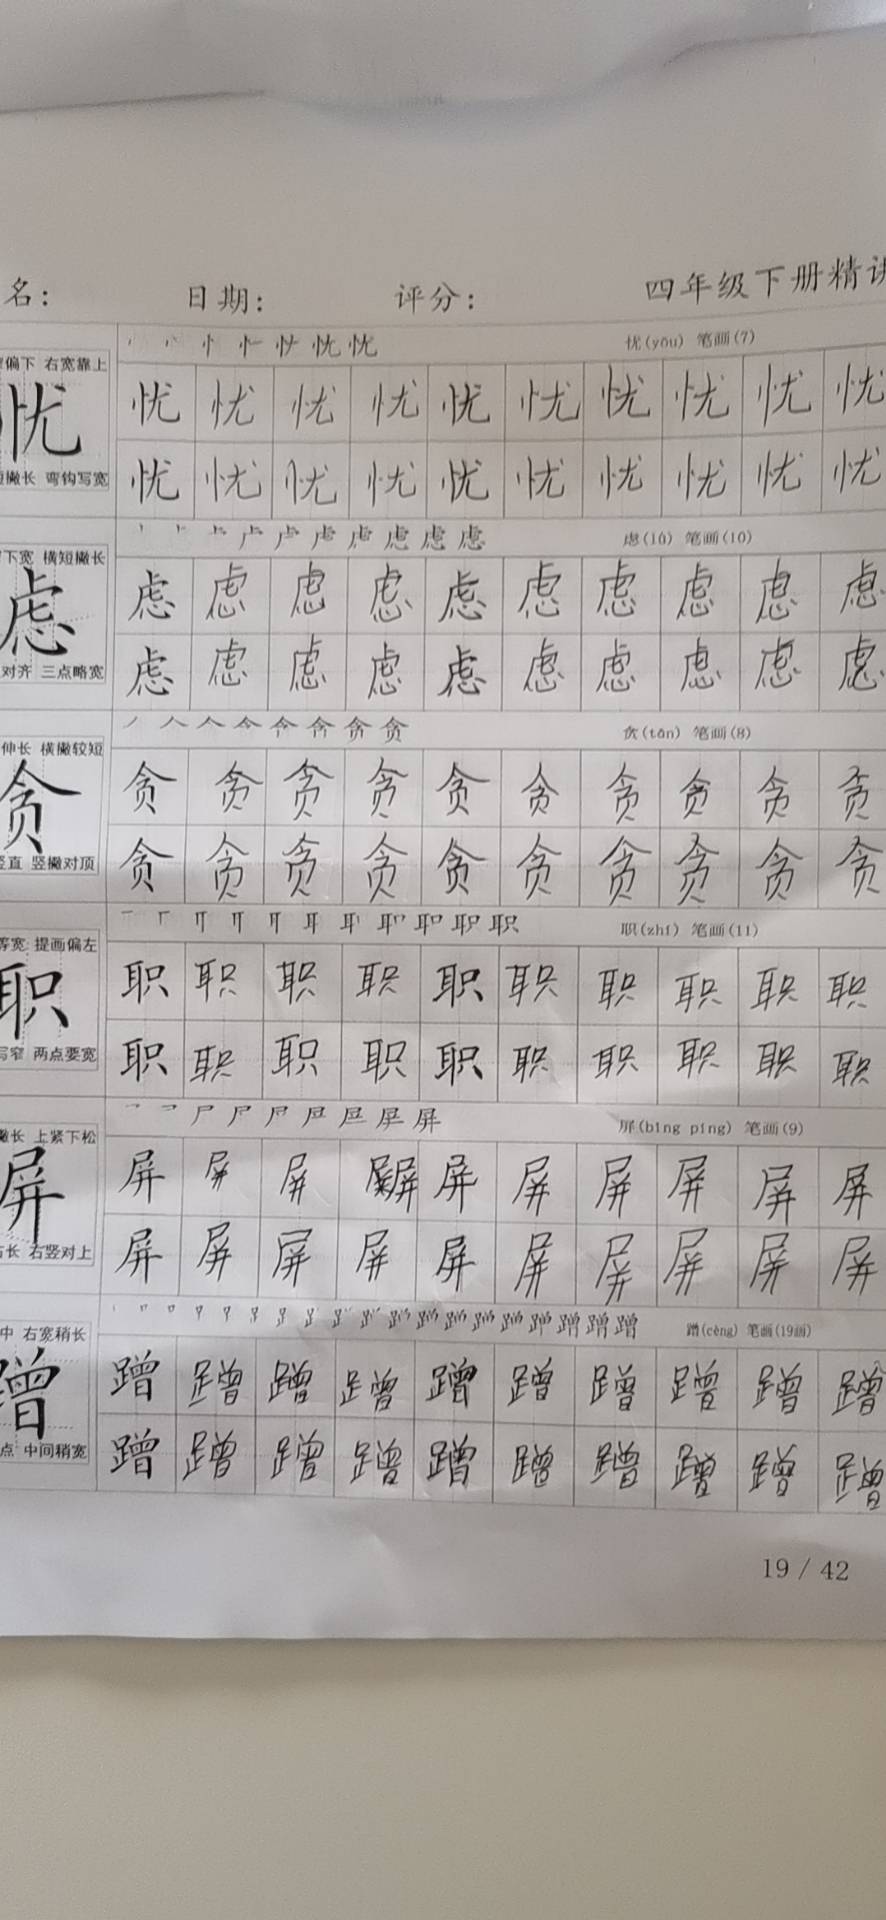 名： 日期： 评分： 四年级下册精讲
偏下 右宽靠上
忧
撇长 弯钩写宽
忄 忧 忧 忧(yōu) 笔画(7)
忧 忧 忧 忧 忧 忧 忧 忧 忧 忧
忧 忧 忧 忧 忧 忧 忧 忧 忧 忧
下宽 横短撇长
虑
对齐 三点略宽
虑 虑 虑 虑(lǜ) 笔画(10)
虑 虑 虑 虑 虑 虑 虑 虑 虑 虑
虑 虑 虑 虑 虑 虑 虑 虑 虑 虑
伸长 横撇较短
贪
竖直 竖撇对顶
贪 贪 贪(tān) 笔画(8)
贪 贪 贪 贪 贪 贪 贪 贪 贪 贪
贪 贪 贪 贪 贪 贪 贪 贪 贪 贪
等宽 提画偏左
职
写窄 两点要宽
耳 职 职 职(zhí) 笔画(11)
职 职 职 职 职 职 职 职 职 职
职 职 职 职 职 职 职 职 职 职
撇长 上紧下松
屏
右长 右竖对上
尸 屏 屏 屏(bǐng píng) 笔画(9)
屏 屏 屏 屏 屏 屏 屏 屏 屏 屏
屏 屏 屏 屏 屏 屏 屏 屏 屏 屏
中 右宽稍长
蹭
点 中间稍宽
蹭 蹭 蹭 蹭(cèng) 笔画(19画)
蹭 蹭 蹭 蹭 蹭 蹭 蹭 蹭 蹭 蹭
蹭 蹭 蹭 蹭 蹭 蹭 蹭 蹭 蹭 蹭
19 / 42